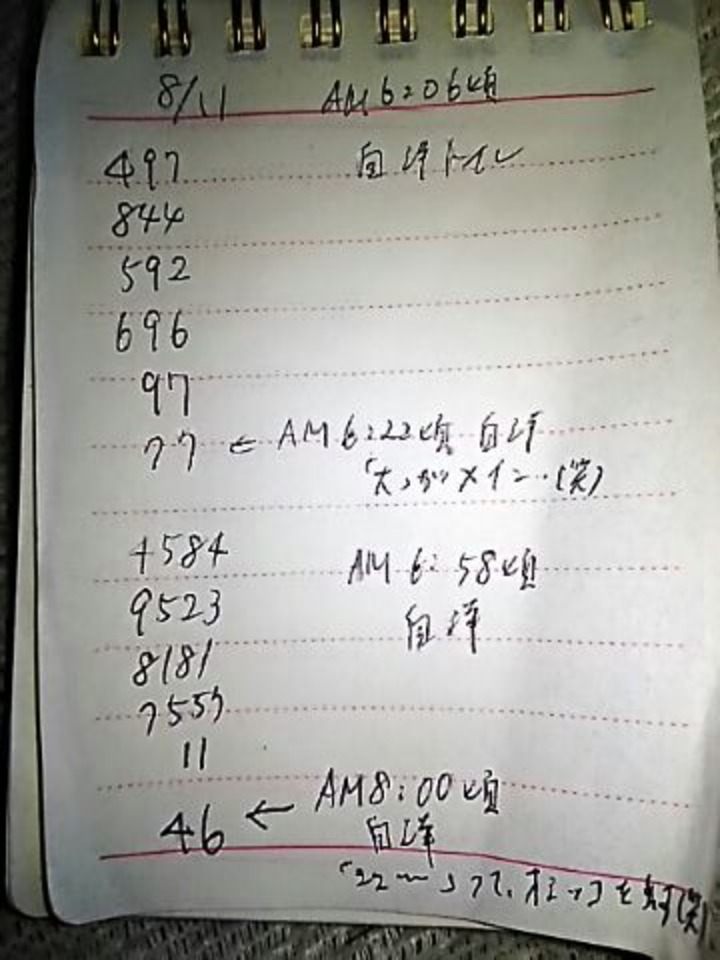 8/11 AM 6:06頃
497 自洋トイレ
844
592
696
97
77 ← AM 6:22頃 自洋
「大」がメイン…(笑)
4584 AM 6:58頃
9523 自洋
8181
7557
11
46 ← AM8:00頃
自洋
って、(笑)